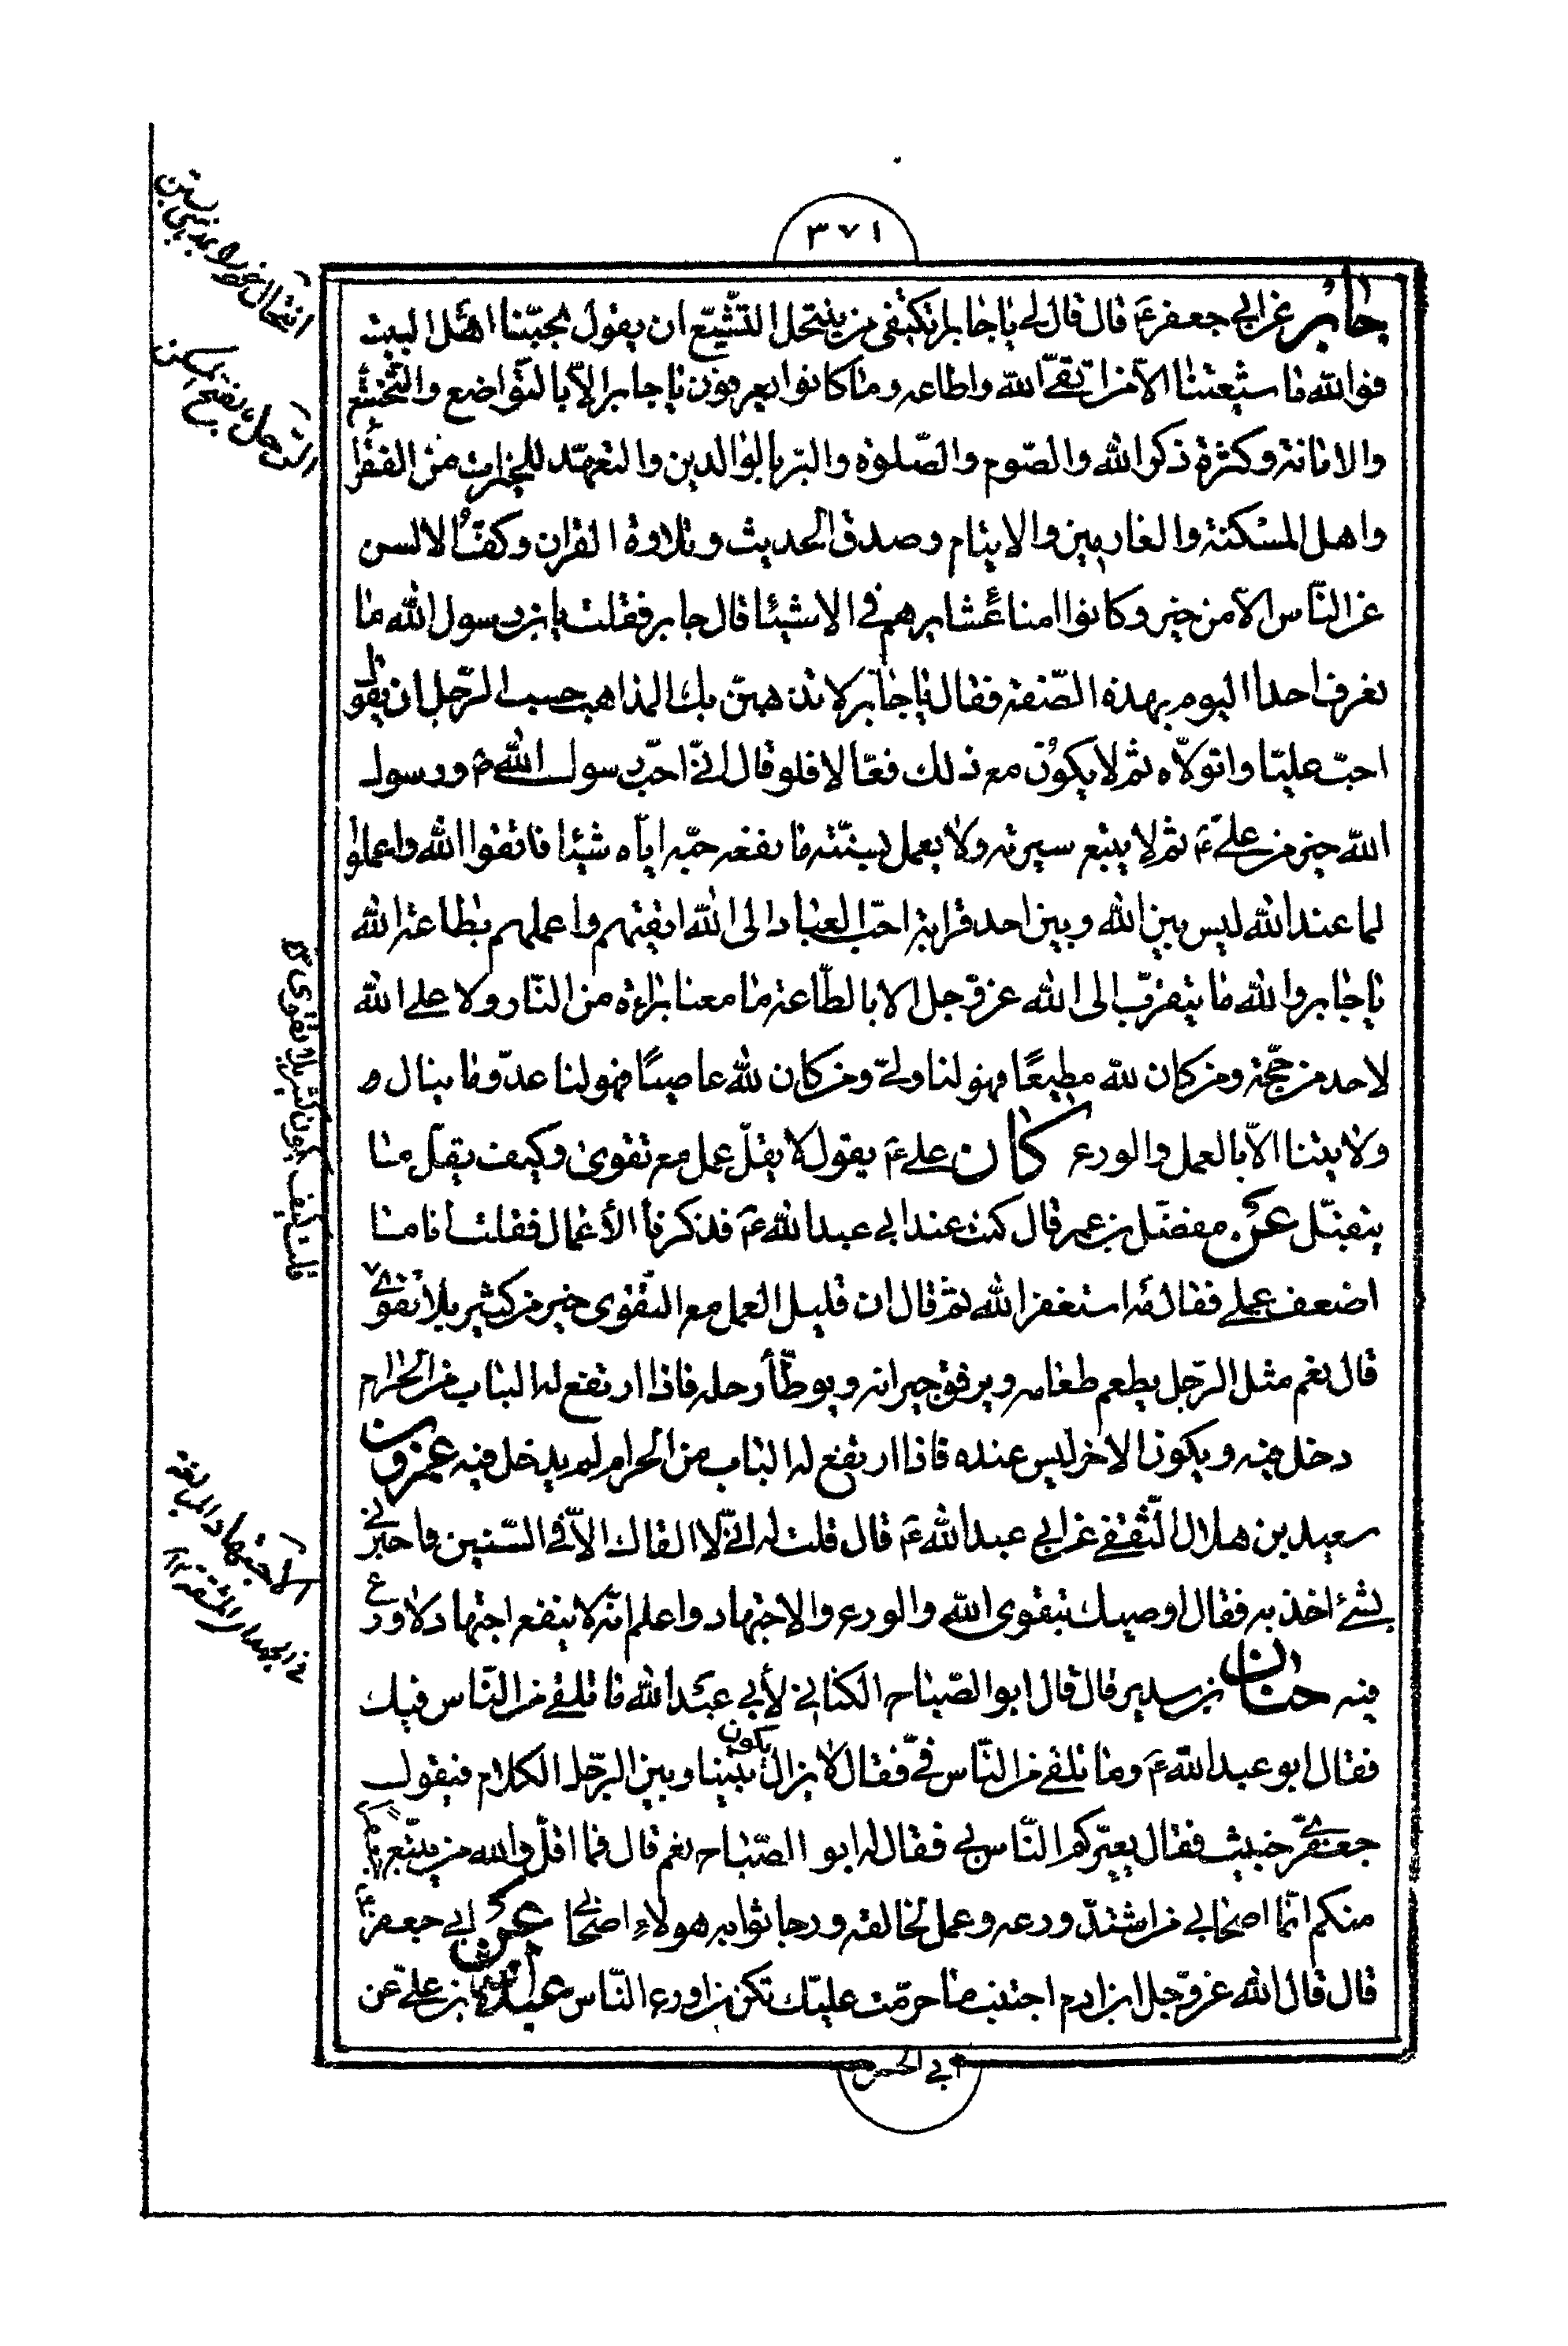 ٣٧١
جابر عن ابي جعفر ع قال قال لي يا جابر ايكتفى من ينتحل التشيّع ان يقول بحبّنا اهل البيت
فوالله ما شيعتنا الا من اتقى الله واطاعه وما كانوا يعرفون يا جابر الّا بالتّواضع والتّخشّع
والامانة وكثرة ذكر الله والصّوم والصّلوة والبّر بالوالدين والتعهّد للجيران من الفقرا
واهل المسكنة والغارمين والايتام وصدق الحديث وتلاوة القران وكفّ الالسن
عن النّاس الّا من خير وكانوا امناء عشايرهم في الاشياء قال جابر فقلت يا بن رسول الله ما
نعرف احدا اليوم بهذه الصّفة فقال يا جابر لا تذهبّن بك المذاهب حسب الرّجل ان يقول
احبّ عليّا واتولّاه ثم لا يكون مع ذلك فعّالا فلو قال انّي احبّ رسول الله ص ورسول
الله خير من عليّ ع ثم لا يتبع سيرته ولا يعمل بسنّته ما نفعه حبّه ايّاه شيئا فاتقوا الله واعملوا
لما عند الله ليس بين الله وبين احد قرابة احبّ العباد الى الله اتقيهم واعملهم بطاعة الله
يا جابر والله ما يتقرّب الى الله عزّ وجل الا بالطّاعة ما معنا براءة من النّار ولا على الله
لاحد من حجّة ومن كان لله مطيعًا فهو لنا وليّ ومن كان لله عاصيًا فهو لنا عدّو ما ينال و
ولايتنا الّا بالعمل والورع كان علي ع يقول لا يقلّ عمل مع تقوى وكيف يقلّ ما
يتقبّل عن مفضّل بن عمر قال كنت عند ابي عبد الله ع فذكرنا الأعمال فقلت انا ما
اضعف عملي فقال مه استغفر الله ثم قال ان قليل العمل مع التّقوى خير من كثير بلا تقوى
قال نعم مثل الرّجل يطعم طعامه ويرفق جيرانه ويوطّأ رحله فاذا ارتفع له الباب من الحرام
دخل فيه ويكون الاخر ليس عنده فاذا ارتفع له الباب من الحرام لم يدخل فيه عمرو بن
سعيد بن هلال الثّقفي عن ابي عبد الله ع قال قلت له انّي لا القاك الّا في السّنين فاخبرني
بشئ اخذ به فقال اوصيك بتقوى الله والورع والاجتهاد واعلم انّه لا ينفع اجتهاد لا ورع
فيه حنان بن سدير قال قال ابو الصّباح الكناني لأبي عبد الله ما نلقى من النّاس فيك
فقال ابو عبد الله ع وما تلقى من النّاس فيّ فقال لا يزال يكون بيننا وبين الرّجل الكلام فيقول
جعفريّ خبيث فقال يعيّركم النّاس بي فقال له ابو الصّباح نعم قال فما اقلّ والله من يتّبع جعفرا
منكم انّما اصحابي من اشتدّ ورعه وعمل لخالقه ورجا ثوابه هولاء اصحابي عن ابي جعفر ع
قال قال الله عزّ وجل ابن ادم اجتنب ما حرّمت عليك تكن من اورع النّاس بن علي عن
ابي الحسن
قلت كيف يكون كثير بلا تقوى